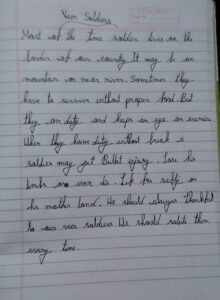 Veer Soldiers
Most of the time soldier lives on the
border of our country. It may be on
mountain or near river. Sometimes they
have to survive without proper food. But
they on duty and keeps an eye on enemies
When they have duty without break a
soldier may get Bullet injury. Lose his
limbs or even die. Life for
his mother land. We should always thankful
to our veer soldiers We should salute them
every time.